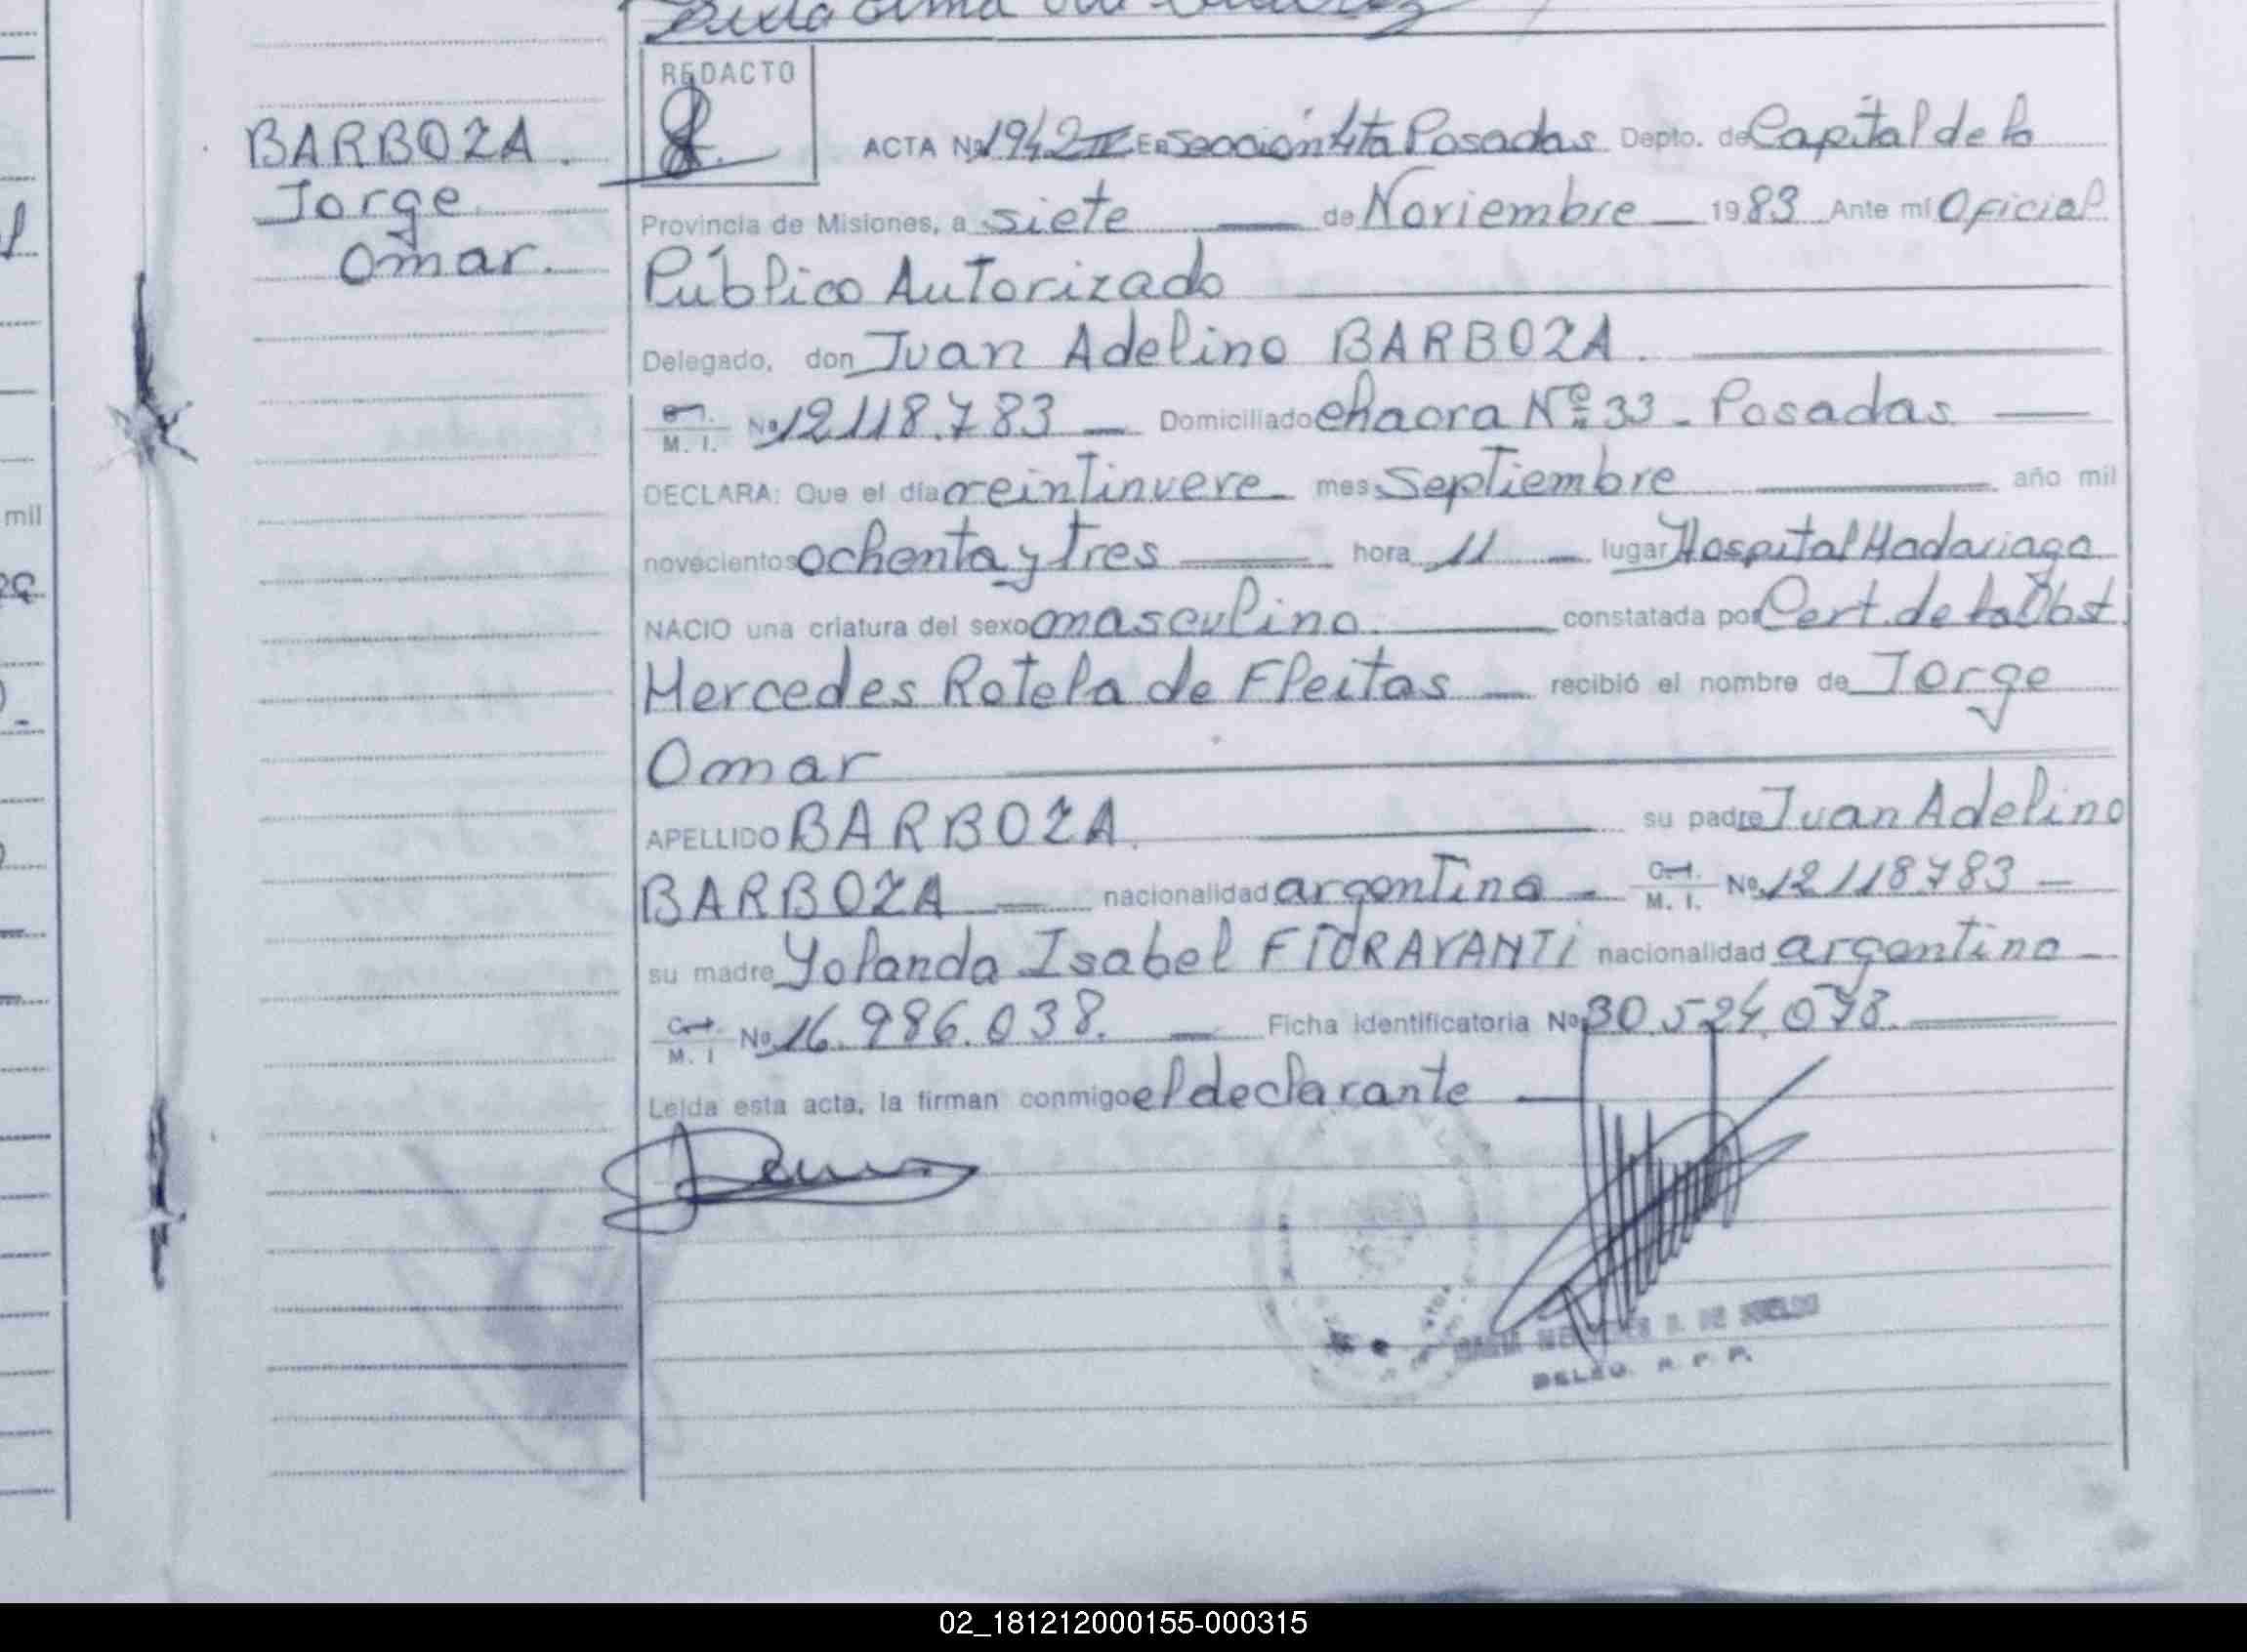 BARBOZA.
Jorge
Omar.
REDACTO
ACTA Nº 1942 II En Sección 4ta Posadas Depto. de Capital de la
Provincia de Misiones, a siete de Noviembre 1983 Ante mí Oficial
Público Autorizado
Delegado, don Juan Adelino BARBOZA.
M. I. Nº 12118.783 Domiciliado chacra Nº 33 - Posadas
DECLARA: Que el día veintinueve mes Septiembre año mil
novecientos ochenta y tres hora 11 lugar Hospital Madariaga
NACIO una criatura del sexo masculino constatada por Cert. de la Obst.
Mercedes Rotela de Fleitas recibió el nombre de Jorge
Omar
APELLIDO BARBOZA. su padre Juan Adelino
BARBOZA nacionalidad argentina - M. I. Nº 12118783 -
su madre Yolanda Isabel FIORAVANTI nacionalidad argentina -
M. I Nº 16.986.038. Ficha identificatoria Nº 30.524.078.
Leída esta acta, la firman conmigo el declarante
DELEG. R. P. P.
mil
02_181212000155-000315